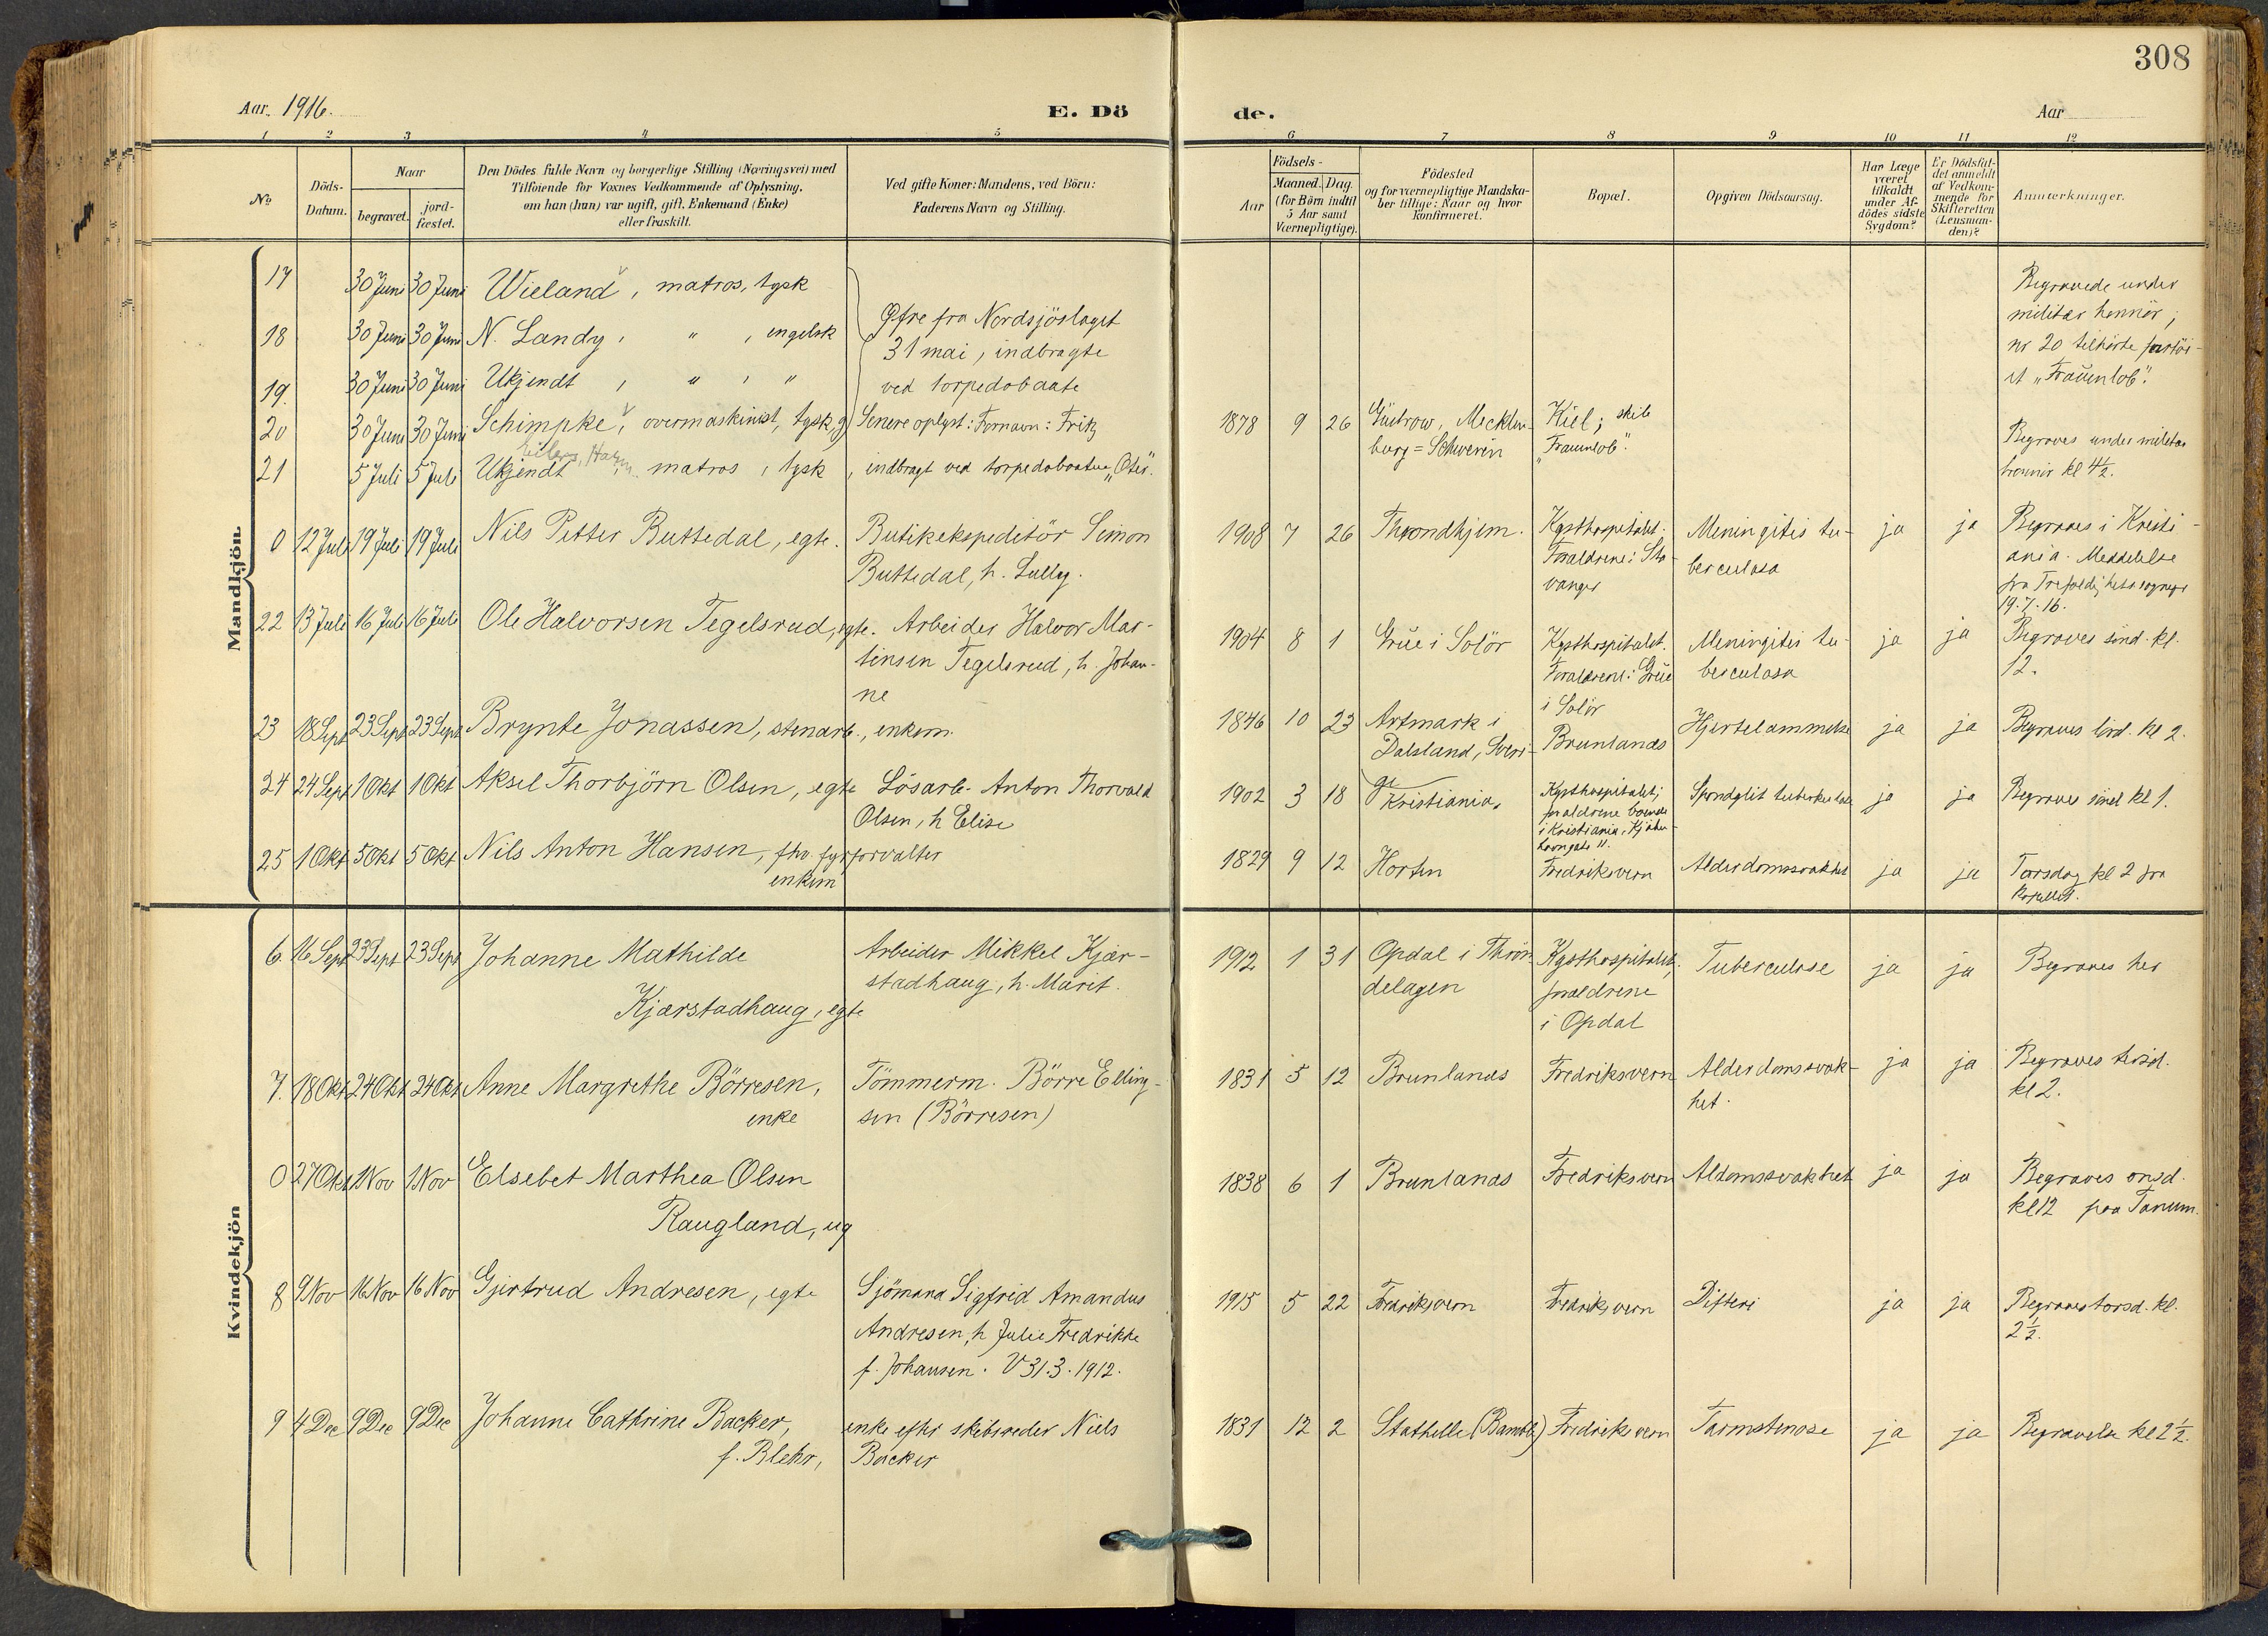 308
Aar. 1916.
E. Dö
de.
Aar
1 2 3 4 5 6 7 8 9 10 11 12
No
Döds-
Datum.
Naar
begravet.
jord-
fæstet.
Den Dödes fulde Navn og borgerlige Stilling (Næringsvei) med
Tilföiende for Voxnes Vedkommende af Oplysning,
om han (hun) var ugift, gift, Enkemand (Enke)
eller fraskilt.
Ved gifte Koner: Mandens, ved Börn:
Faderens Navn og Stilling.
Födsels-
Aar
Maaned. Dag.
(for Börn indtil
5 Aar samt
Værnepligtige).
Födested
og for værnepligtige Mandska-
ber tillige: Naar og hvor
konfirmeret.
Bopæl.
Opgiven Dödsaarsag.
Har Læge
været
tilkaldt
under Af-
dödes sidste
Sygdom?
Er Dödsfal-
det anmeldt
af Vedkom-
mende for
Skifteretten
(Lensman-
den)?
Anmærkninger.
Mandkjön.
17 30 Juni 30 Juni Wieland, matros, tysk
18 30 Juni 30 Juni N. Landy, " , engelsk
19. 30 Juni 30 Juni Ukjendt , " , "
Ofre fra Nordsjöslaget
31 mai, indbragte
ved torpedobaate
Begravede under
militær honnör;
nr 20 tilhörte fartöi-
et "Frauenlob".
20 30 Juni 30 Juni Schimpke, overmaskinist, tysk, g Senere oplyst: Fornavn: Fritz 1878 9 26 Güstrow, Mecklen-
burg=Schwerin
Kiel; skib
"Frauenlob".
21 5 Juli 5 Juli Ukjendt matros, tysk, indbragt ved torpedobaaten "Oter".
Begraves under militær
honnör kl 4½.
0 12 Juli 19 Juli 19 Juli Nils Petter Buttedal, egte. Butikekspeditör Simon
Buttedal, h. Lully.
1908 7 26 Throndhjem. Kysthospitalet.
Forældrene: Sta-
vanger
Meningitis tu-
berculosa
ja ja Begraves i Kristi-
ania. Meddelelse
fra Trefoldighets sognepr
19.7.16.
22 13 Juli 16 Juli 16 Juli Ole Halvorsen Tegelsrud, egte. Arbeider Halvor Mar-
tinsen Tegelsrud, h. Johan-
ne
1904 8 1 Grue i Solör Kysthospitalet.
Forældrene: Grue
i Solör
Meningitis tu-
berculosa
ja ja Begraves sönd. kl.
12.
23 18 Sept 23 Sept 23 Sept Brynte Jonassen, stenarb., enkem.
1846 10 23 Artmark i
Dalsland, Sveri-
ge
Brunlanes Hjertelammelse ja ja Begraves lörd. kl 2.
24 24 Sept 1 Okt 1 Okt Aksel Thorbjörn Olsen, egte Lösarb. Anton Thorvald
Olsen, h Elise
1902 3 18 Kristiania. Kysthospitalet;
forældrene boende
i Kristiania,
Spondylit tuberkulose ja ja Begraves sönd kl 1.
25 1 Okt 5 Okt 5 Okt Nils Anton Hansen, fhv. fyrforvalter
enkem
1829 9 12 Horten Fredriksvern Alderdomssvakhet ja ja Torsdag kl 2 fra
kapellet.
Kvindekjön
6. 16 Sept 23 Sept 23 Sept Johanne Mathilde
Kjærstadhaug, egte
Arbeider Mikkel Kjær-
stadhaug, h. Marit.
1912 1 31 Opdal i Thrön-
delagen
Kysthospitalet,
forældrene
i Opdal
Tuberculose ja ja Begraves her
7. 18 Okt 24 Okt 24 Okt Anne Margrethe Börresen,
enke
Tömmerm. Börre Elling-
sen (Börresen)
1831 5 12 Brunlanes Fredriksvern Alderdomssvak-
het.
ja ja Begraves tirsd.
kl 2.
0 27 Okt 1 Nov 1 Nov Elsebet Marthea Olsen
Raugland, ug
1838 6 1 Brunlanes Fredriksvern Aldomssvakhet ja ja Begraves onsd.
kl 12 paa Tanum.
8 9 Nov 16 Nov 16 Nov Gjertrud Andresen, egte Sjömand Sigfrid Amandus
Andresen, h Julie Fredrikke
f. Johansen. V 31.3.1912.
1915 5 22 Fredriksvern Fredriksvern Difteri ja ja Begraves torsd. kl.
2½.
9 4 Dec 9 Dec 9 Dec Johanne Cathrine Backer,
f. Blehr,
enke efter skibsreder Niels
Backer
1831 12 2 Stathelle (Bamble) Fredriksvern Tarmstenose ja ja Begravelse kl 2½.